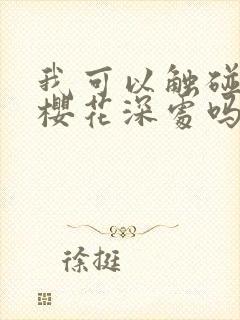 我可以触碰
樱花深处吗
徐挺